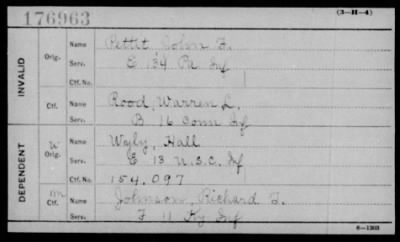 176963
(3-H-4)
INVALID
Orig.
Name Pettit, F.
Serv. E 134 Pa Inf
Ctf. No.
Ctf.
Name Rood, Warren L.
Serv. B 16 Conn Inf
DEPENDENT
W
Orig.
Name Wyly, Hall
Serv. E 13 U.S.C. Inf
Ctf. No. 154.097
m
Ctf.
Name Johnson, Richard F.
Serv. F 11 Ky Inf
6-1203